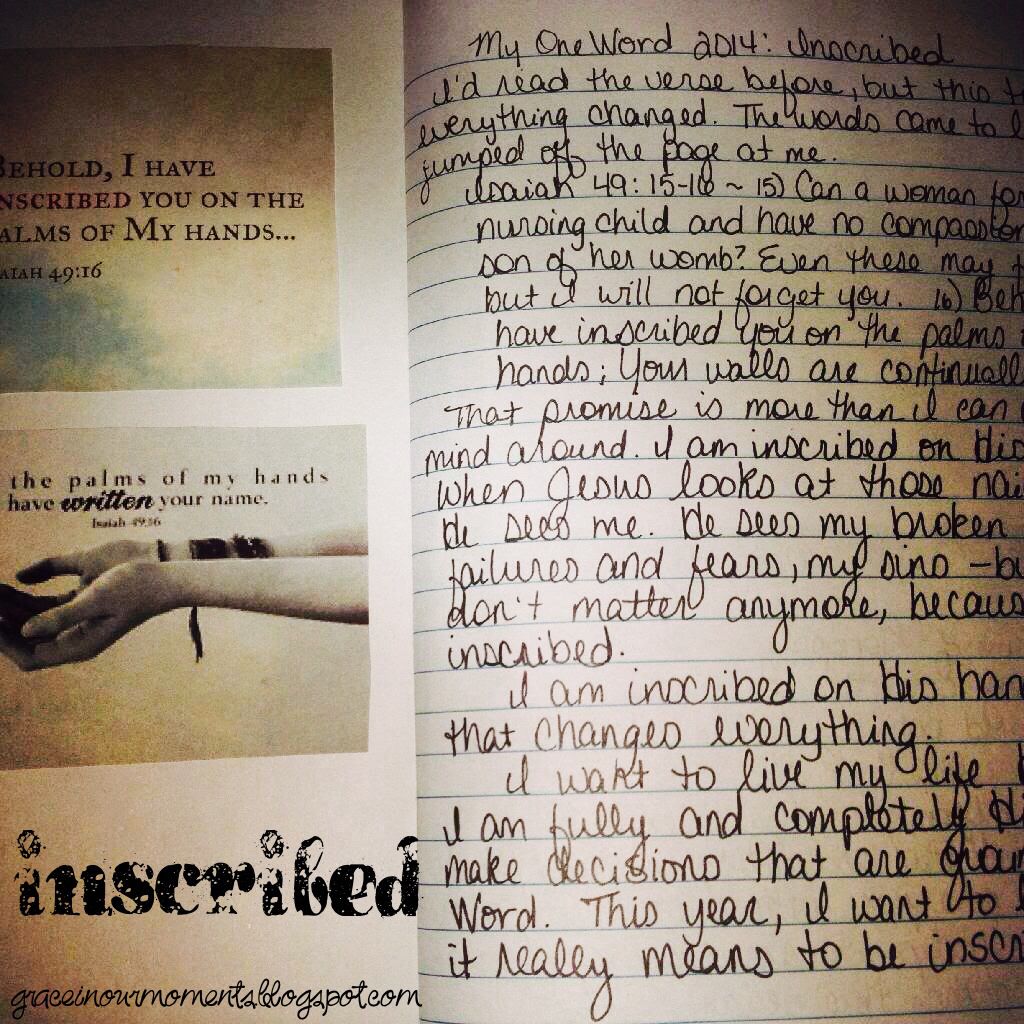 BEHOLD, I HAVE
INSCRIBED YOU ON THE
PALMS OF MY HANDS...
ISAIAH 49:16
the palms of my hands
have written your name.
Isaiah 49:16
inscribed
graceinourmoments.blogspot.com
My One Word 2014: Inscribed
I'd read the verse before, but this
everything changed. The words came to
jumped off the page at me.
Isaiah 49:15-16 ~ 15) Can a woman
nursing child and have no compassion
son of her womb? Even these may
but I will not forget you. 16)
have inscribed you on the palms
hands; Your walls are
That promise is more than I can
mind around. I am inscribed on His
When Jesus looks at those
He sees me. He sees my broken
failures and fears, my sins –
don't matter anymore,
inscribed.
I am inscribed on His
that changes everything.
I want to live my life
I am fully and completely
make decisions that are
Word. This year, I want to
it really means to be